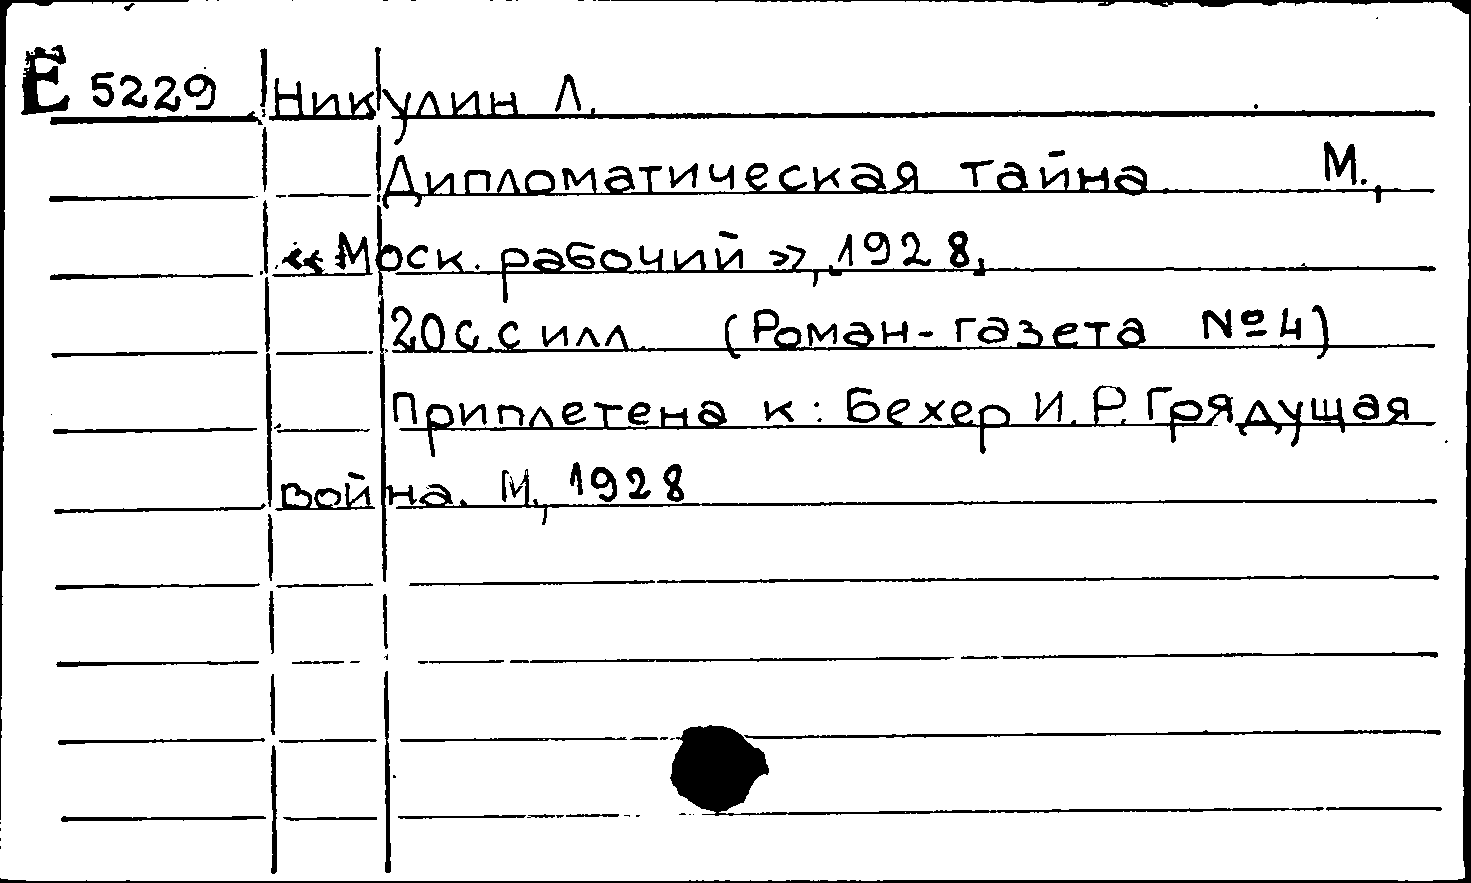 Е 5229 Никулин Л.
Дипломатическая тайна М.,
«Моск. рабочий», 1928.
20 с. с илл. (Роман-газета № 4)
Приплетена к: Бехер И.Р. Грядущая
война. М., 1928